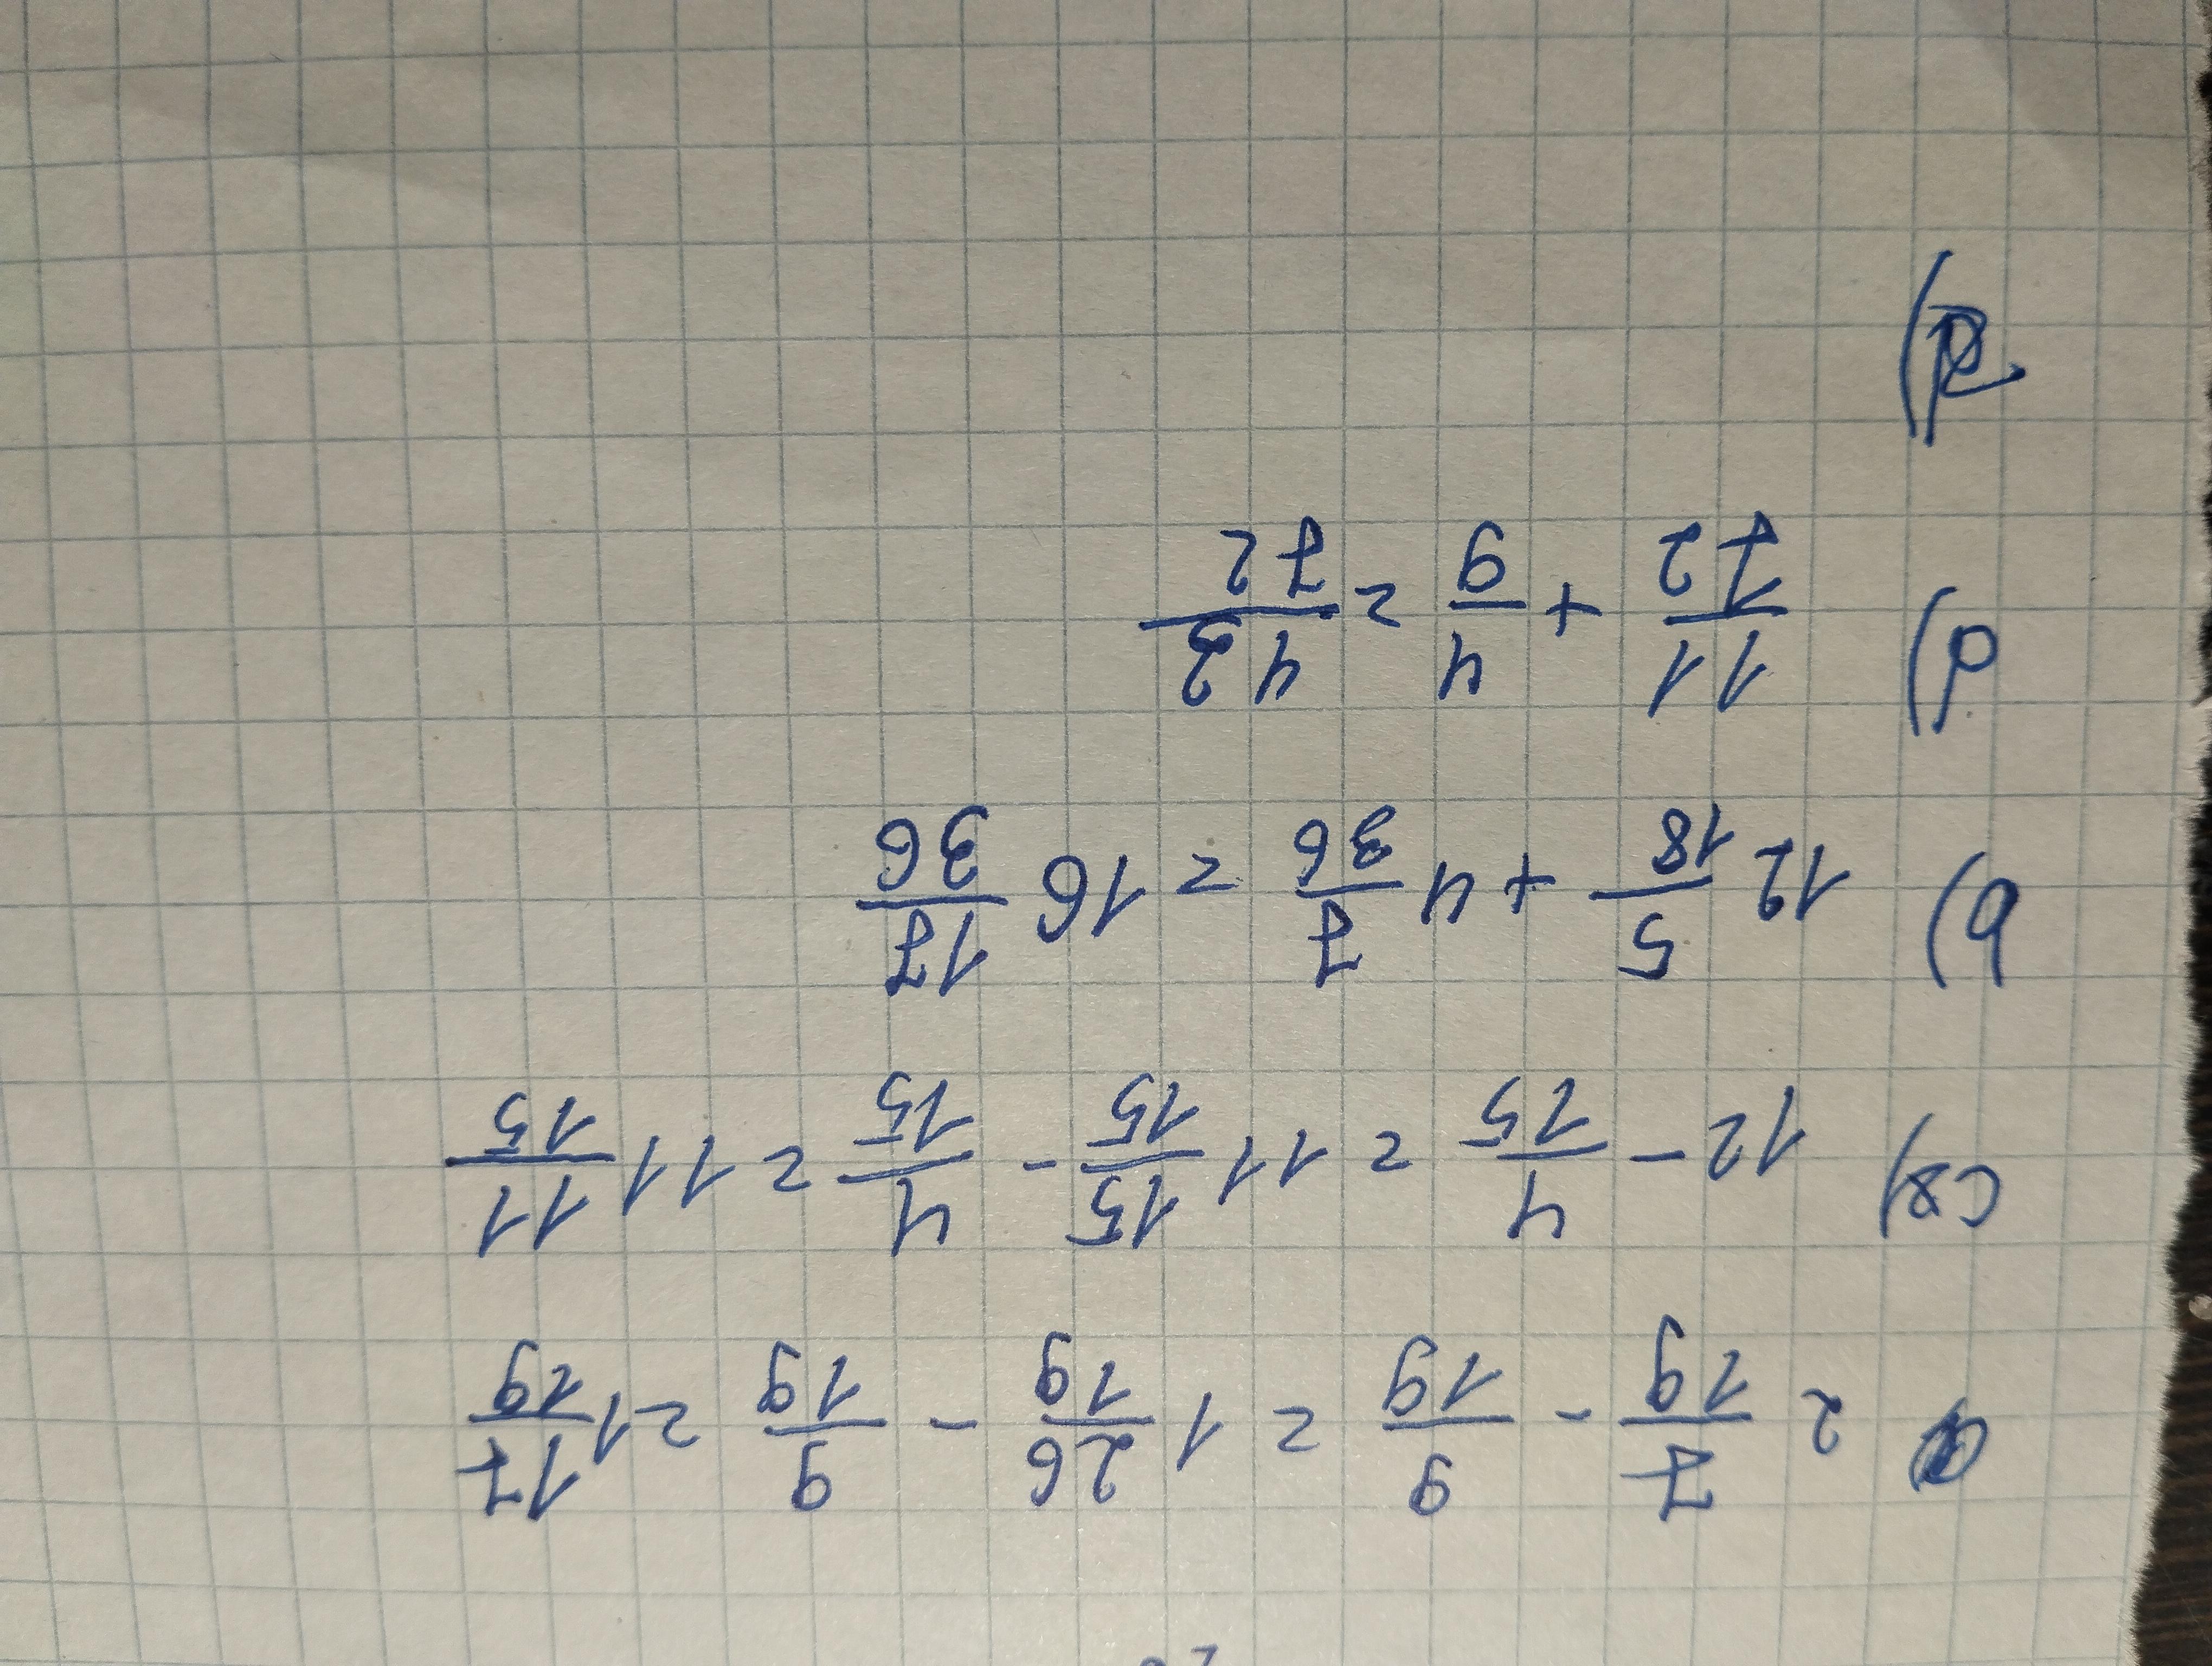 2 7/19 - 9/19 = 1 26/19 - 9/19 = 1 17/19
c) 12 - 4/15 = 11 15/15 - 4/15 = 11 11/15
b) 12 5/18 + 4 7/36 = 16 17/36
d) 11/72 + 4/9 = 43/72